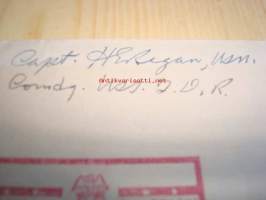 Capt. H E Regan, USN.
Comdg. USS. F. D. R.
antikvariaatti.net